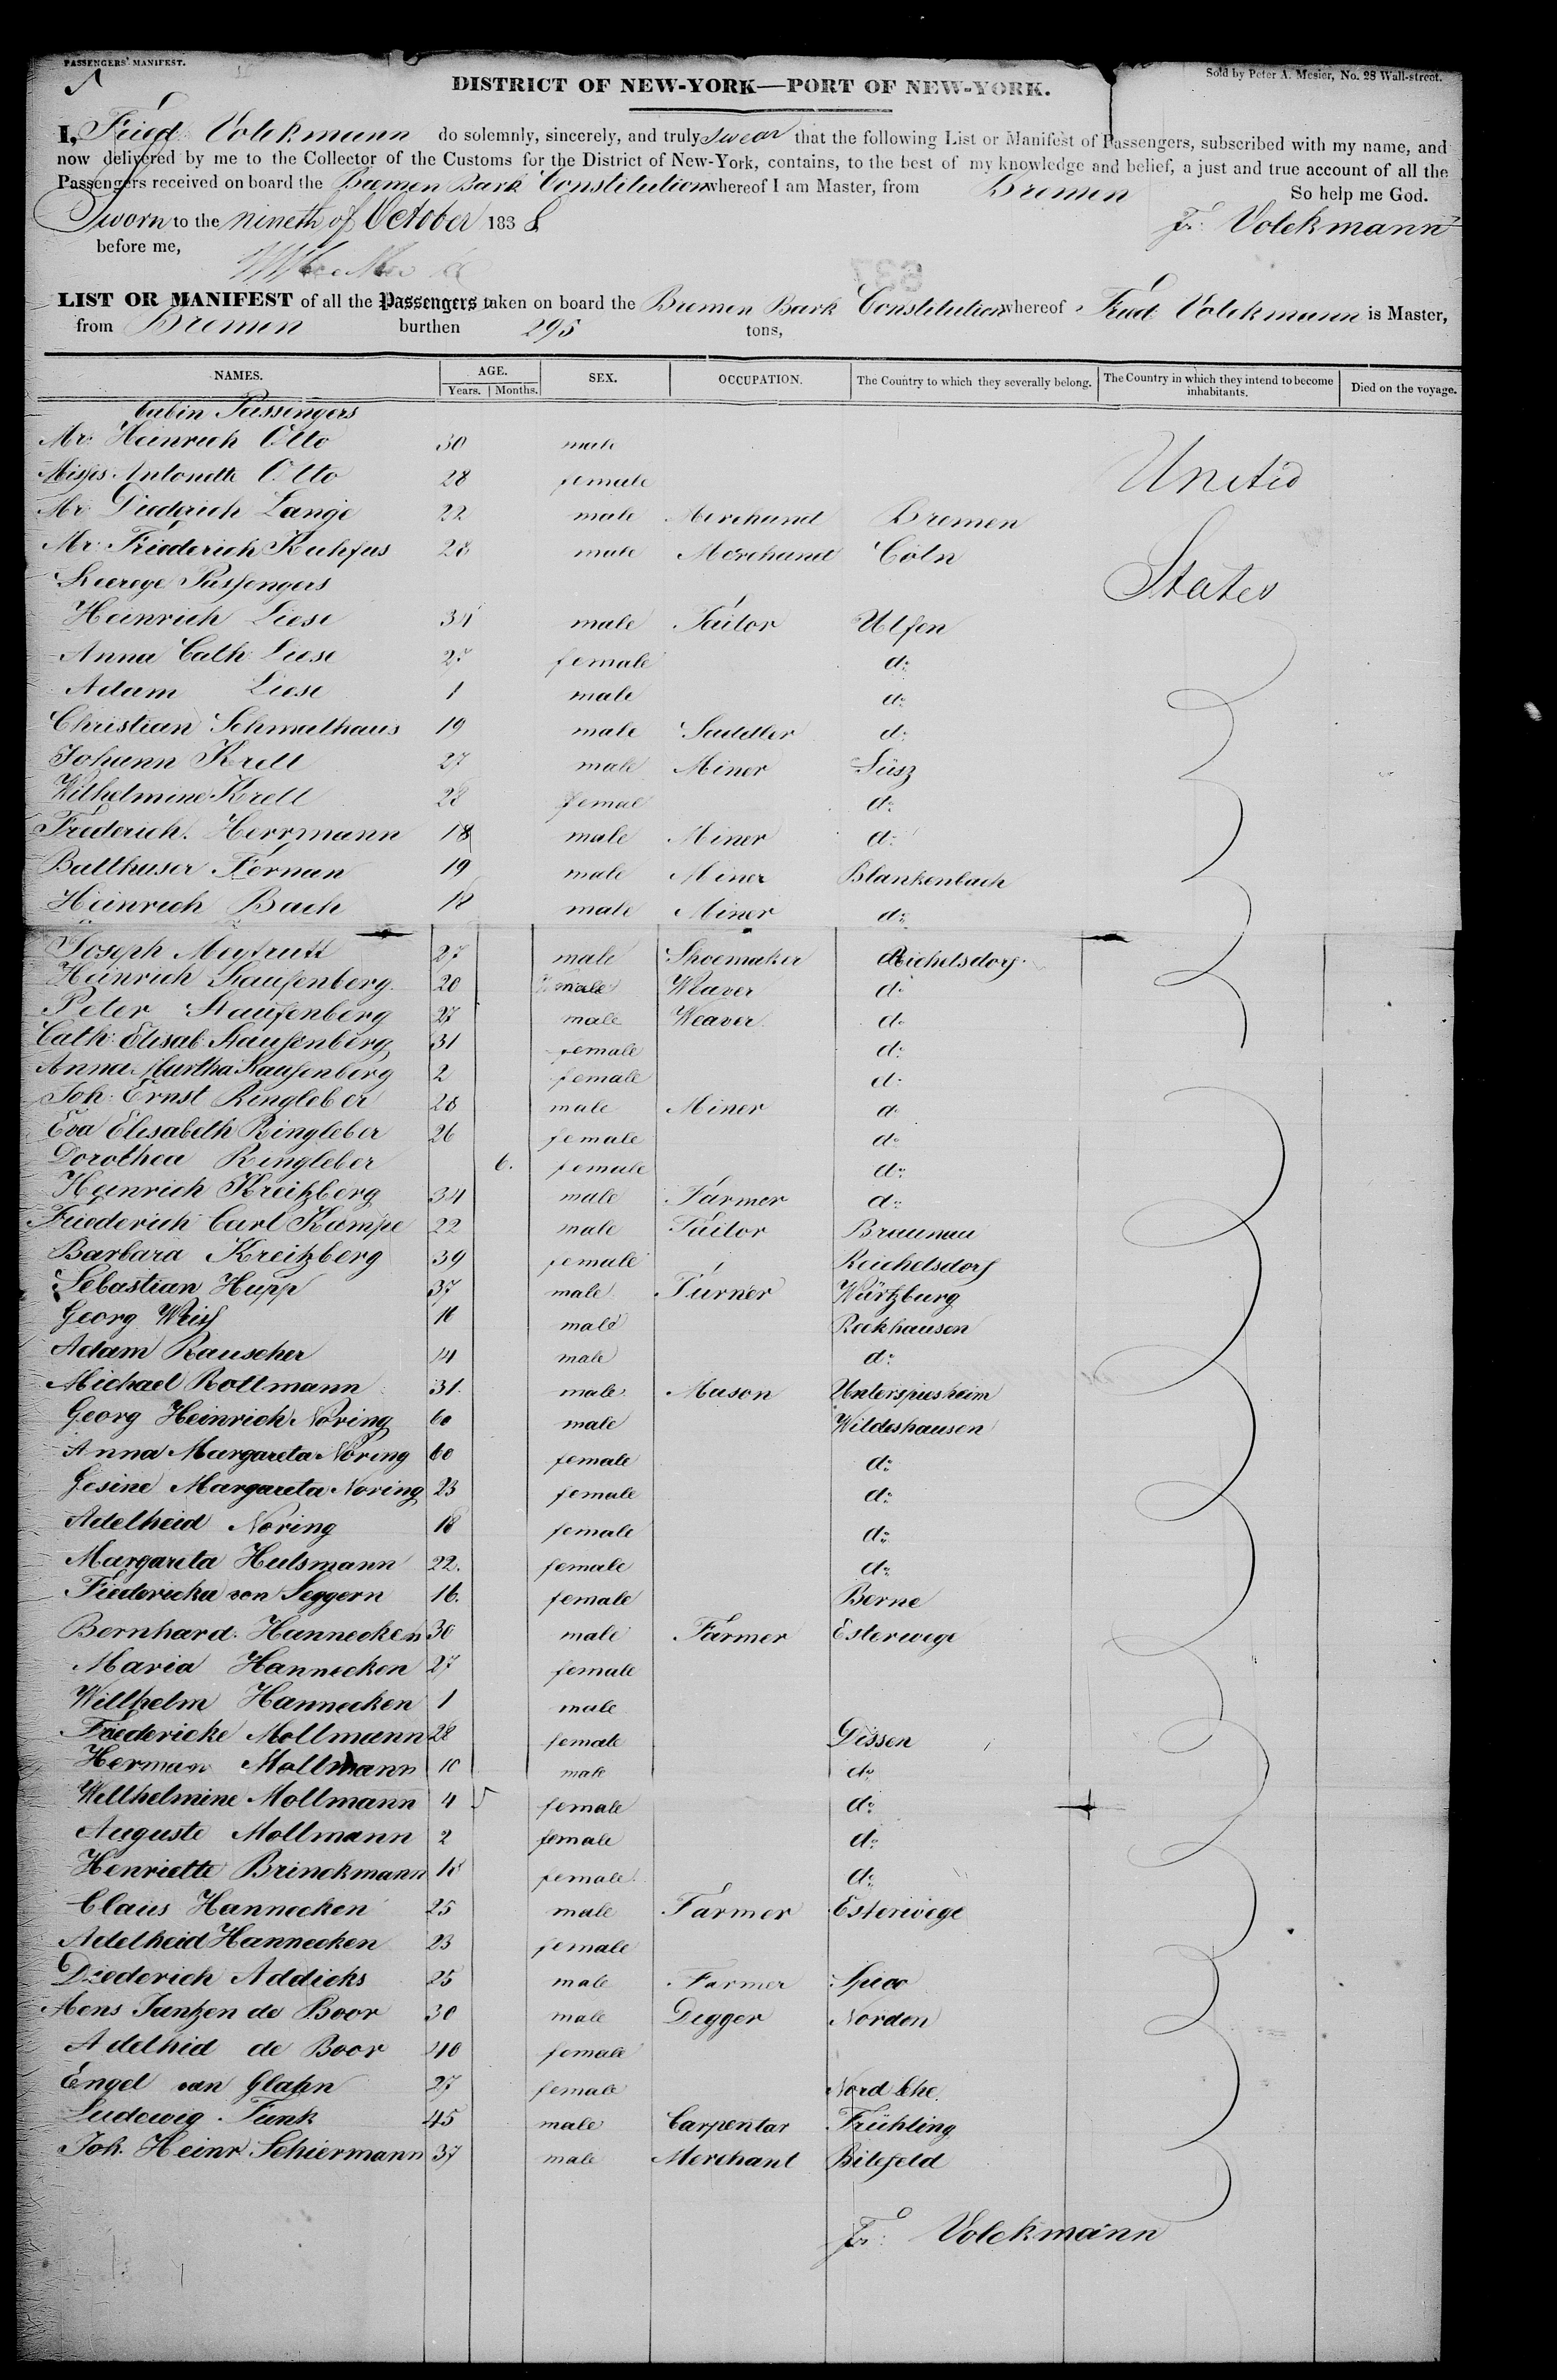 PASSENGERS' MANIFEST.
Sold by Peter A. Mesier, No. 28 Wall-street.
DISTRICT OF NEW-YORK—PORT OF NEW-YORK.
I, Fried. Volckmann do solemnly, sincerely, and truly swear that the following List or Manifest of Passengers, subscribed with my name, and
now delivered by me to the Collector of the Customs for the District of New-York, contains, to the best of my knowledge and belief, a just and true account of all the
Passengers received on board the Bremen Bark Constitution whereof I am Master, from Bremen So help me God.
Sworn to the nineth of October 1838 Fr: Volckmann
before me,
LIST OR MANIFEST of all the Passengers taken on board the Bremen Bark Constitution whereof Fried. Volckmann is Master,
from Bremen burthen 295 tons,
NAMES. AGE. Years. Months. SEX. OCCUPATION. The Country to which they severally belong. The Country in which they intend to become inhabitants. Died on the voyage.
Cabin Passengers
Mr. Heinrich Otto 30 male
Antonette Otto 28 female United
Mr. Diederich Lange 22 male Merchand Bremen
Mr. Friederich Kuhfus 28 male Merchand Cöln
Passengers States
Heinrich Liese 34 male Tailor Ulfen
Anna Cath. Liese female d:
Adam Liese 1 male d:
Christian Schmalhaus 19 male Saddler d:
Johann Krell 27 male Miner Süsz
Wilhelmine Krell 28 femal d:
Frederich. Herrmann 18 male Miner d:
Balthaser Fernau 19 male Miner Blankenbach
Heinrich Bach 18 male Miner d:
Joseph 27 male Shoemaker Richelsdorf
Heinrich Staufenberg 20 male Weaver d:
Peter Staufenberg 27 male Weaver d:
Cath: Elisab. Staufenberg 31 female d:
Anna Martha Staufenberg 2 female d:
Joh. Ernst Ringleber 28 male Miner d:
Eva Elisabeth Ringleber 26 female d:
Dorothea Ringleber 6. female d:
Heinrich Kreitzberg 34 male Farmer d:
Friederich Carl Kampe 22 male Tailor Braunau
Barbara Kreitzberg 39 female Reichelsdorf
Sebastian Hupp 37 male Turner Würtzburg
Georg 16 male Rockhausen
Adam Rauscher 14 male d:
Michael Rollmann 31. male Mason Unterspiesheim
Georg Heinrich Noring 60 male Wildeshausen
Anna Margareta Noring 60 female d:
Gesine Margareta Noring 23 female d:
Adelheid Noring 18 female d:
Margareta Hulsmann 22. female d:
Fiedericka von Seggern 16. female Berne
Bernhard. Hannecken 30 male Farmer Esterwege
Maria Hannecken 27 female
Willhelm Hannecken 1 male
Friedericke Mollmann 28 female Dissen
Herman Mollmann 10 male do
Willhelmine Mollmann 4 female d:
Auguste Mollmann 2 female d:
Henriette Brinckmann 18 female d:
Claus Hannecken 25 male Farmer Esterwege
Adelheid Hannecken 23 female
Diederich Addicks 25 male Farmer
Mens Jantzen de Boor 30 male Degger Norden
Adelheid de Boor 40 female
Engel van Glahn 27 female Nord Lehe
Ludewig. Funk 45 male Carpentar Frühling
Joh. Heinr Schiermann 37 male Merchant Bilefeld
Fr: Volckmann